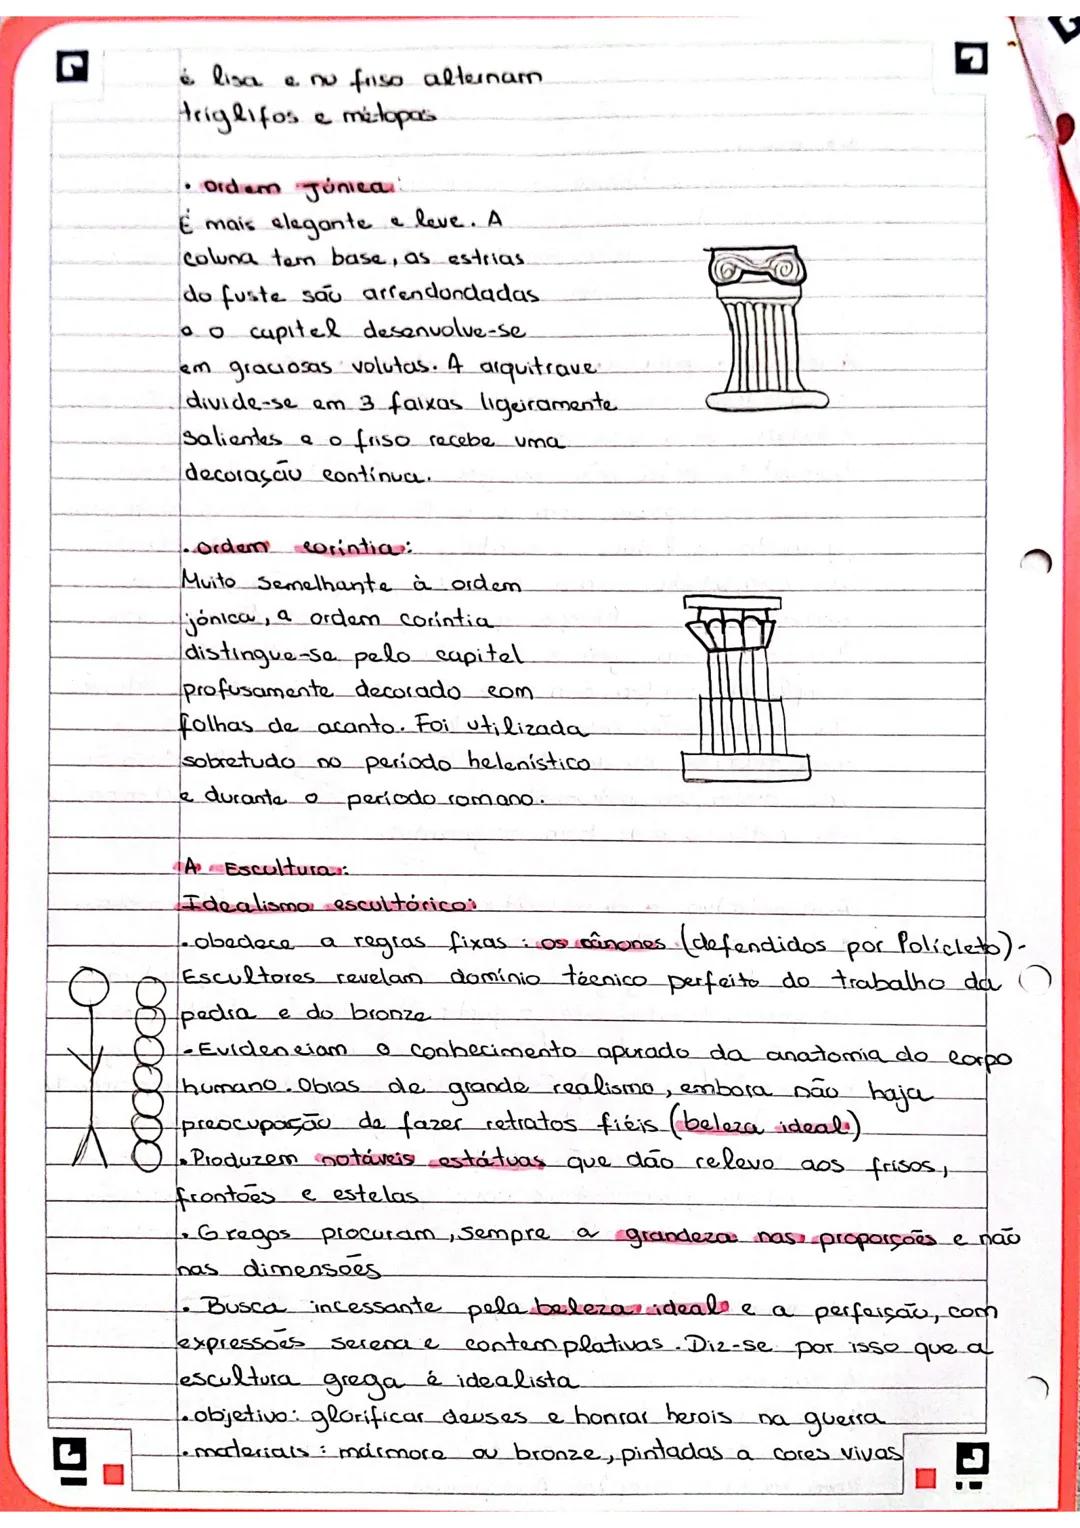 é lisa e no friso alternam
triglifos e métopas
• ordem Jónica:
É mais elegante e leve. A
coluna tem base, as estrias
do fuste são arrendondadas
e o capitel desenvolve-se
em graciosas volutas. A arquitrave
divide-se em 3 faixas ligeiramente
salientes e o friso recebe uma
decoração contínua.
• ordem coríntia:
Muito semelhante à ordem
jónica, a ordem coríntia
distingue-se pelo capitel
profusamente decorado com
folhas de acanto. Foi utilizada
sobretudo no período helenístico
e durante o período romano.
A Escultura:
Idealismo escultórico:
• obedece a regras fixas: os cânones (defendidos por Policleto)-
Escultores revelam domínio técnico perfeito do trabalho da
pedra e do bronze
• Evidenciam o conhecimento apurado da anatomia do corpo
humano. Obras de grande realismo, embora não haja
preocupação de fazer retratos fiéis (beleza ideal)
• Produzem notáveis estátuas que dão relevo aos frisos,
frontões e estelas
• Gregos procuram, sempre a grandeza nas proporções e não
nas dimensões
• Busca incessante pela beleza ideal e a perfeição, com
expressões serena e contemplativas. Diz-se por isso que a
escultura grega é idealista
• objetivo: glorificar deuses e honrar herois na guerra
• materiais: mármore ou bronze, pintadas a cores vivas